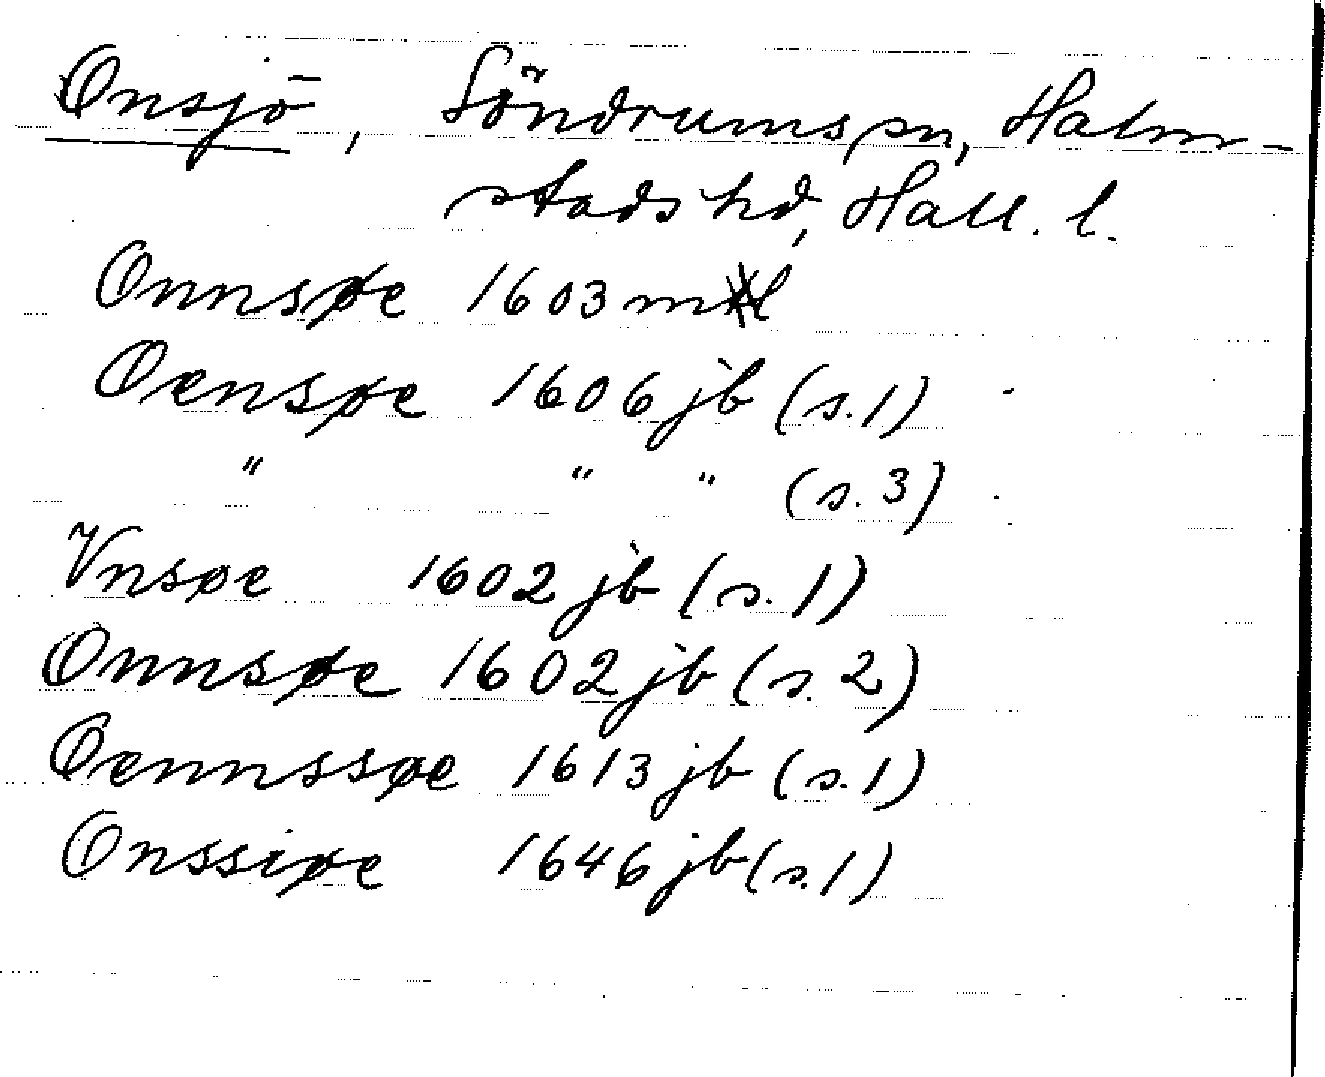 Onsjö, Söndrums sn, Halm-
stads hd, Hall. l.
Onnsøe 1603 ml
Oensøe 1606 jb (s. 1)
" " " (s. 3)
Vnsøe 1602 jb (s. 1)
Onnsøe 1602 jb (s. 2)
Oennssøe 1613 jb (s. 1)
Onssiøe 1646 jb (s. 1)